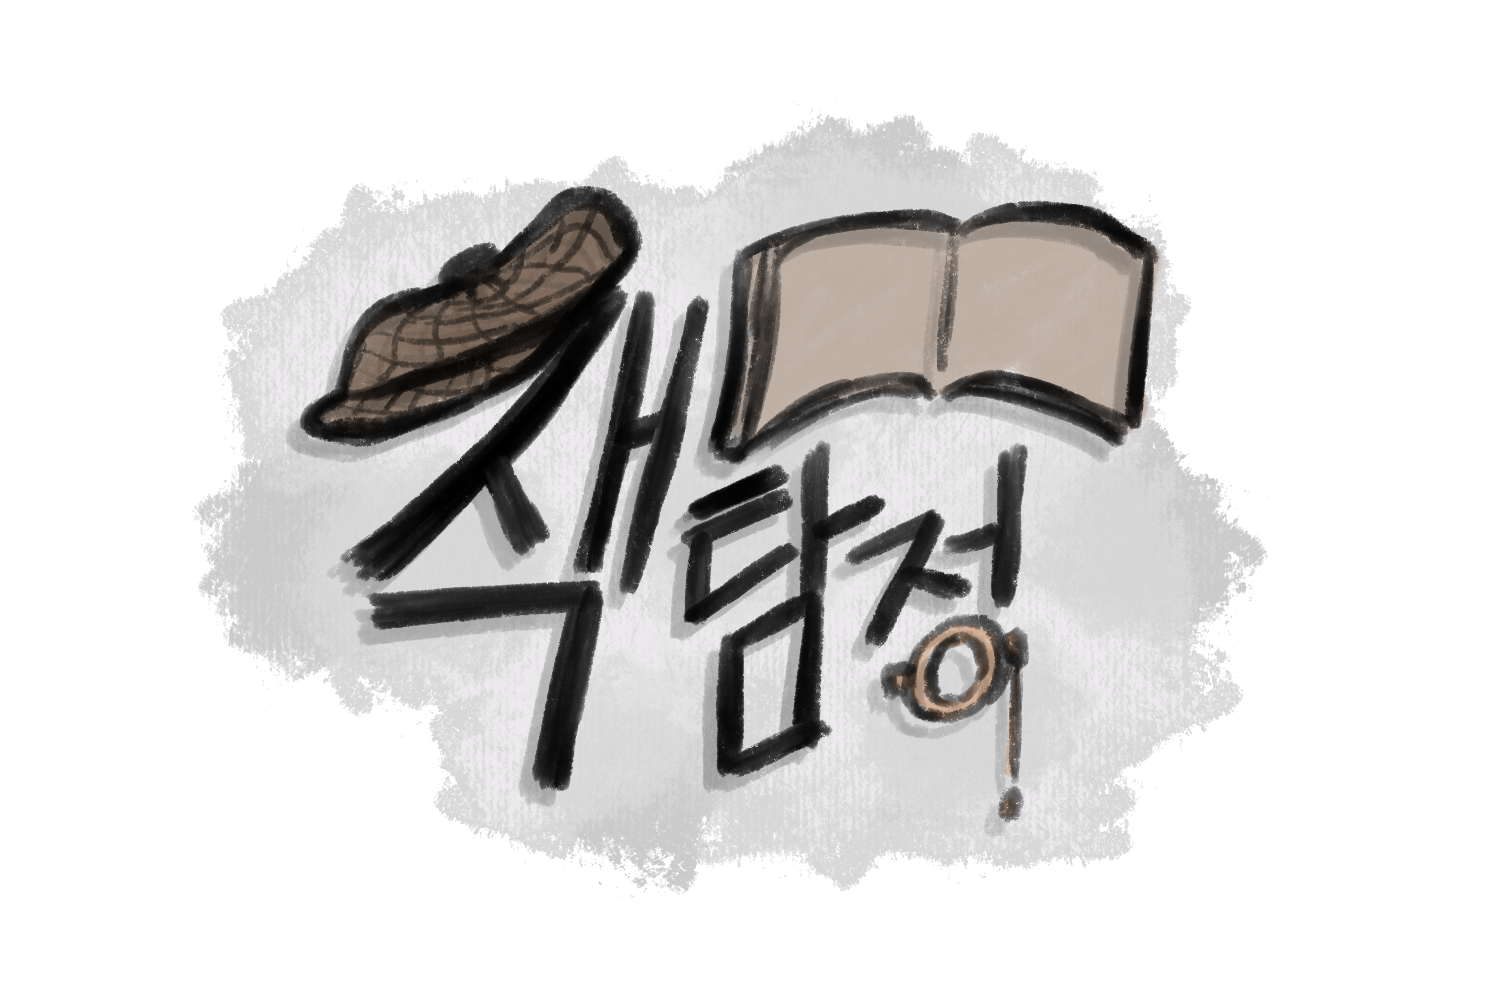 책탐정